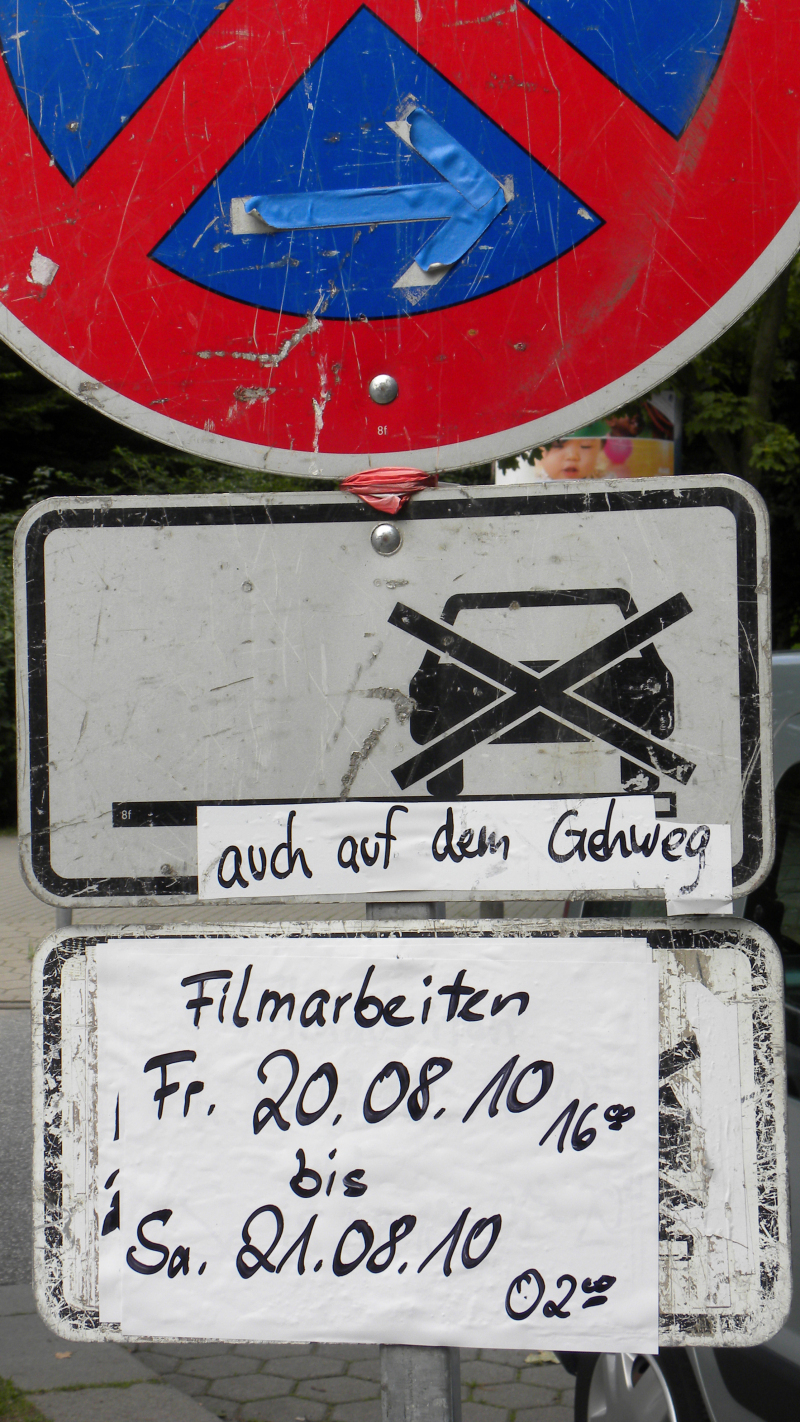 8f
8f
auch auf dem Gehweg
Filmarbeiten
Fr. 20.08.10
16°°
bis
Sa. 21.08.10
02°°